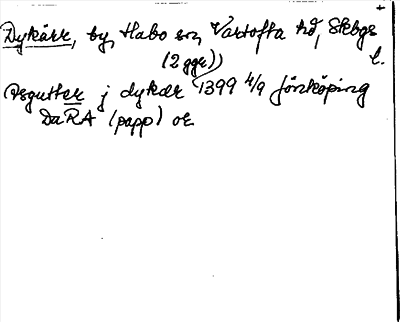 +
Dykärr, by, Habo sn, Vartofta hd, Skbgs l.
(2 ggr))
Asgutter j dykær 1399 4/9 Jönköping
DaRA (papp) or